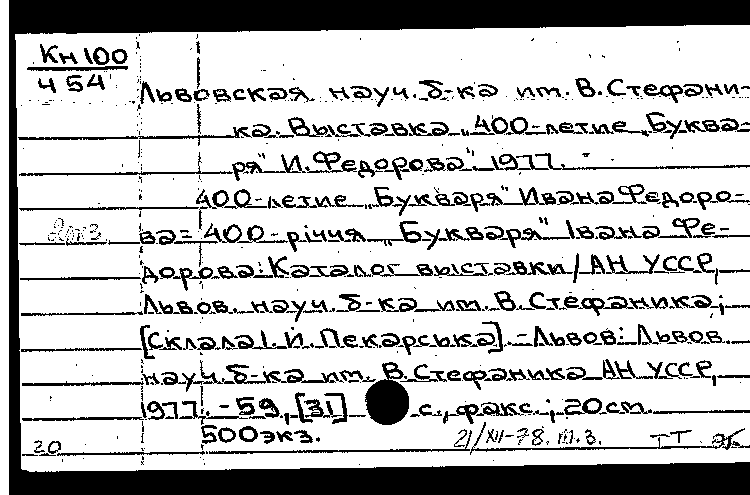 Кн 100
Ч 54
Львовская науч. б-ка им. В. Стефани-
ка. Выставка „400-летие „Буква-
ря" И. Федорова". 1977.
400-летие „Букваря" Ивана Федоро-
2 экз.
ва = 400-річчя „Букваря" Івана Фе-
дорова: Каталог выставки / АН УССР,
Львов. науч. б-ка им. В. Стефаника;
[Склала І. Й. Пекарська]. – Львов: Львов.
науч. б-ка им. В. Стефаника АН УССР,
1977. – 59, [31] с., факс.; 20 см.
500 экз.
20
21/XII-78. т.з. ТТ